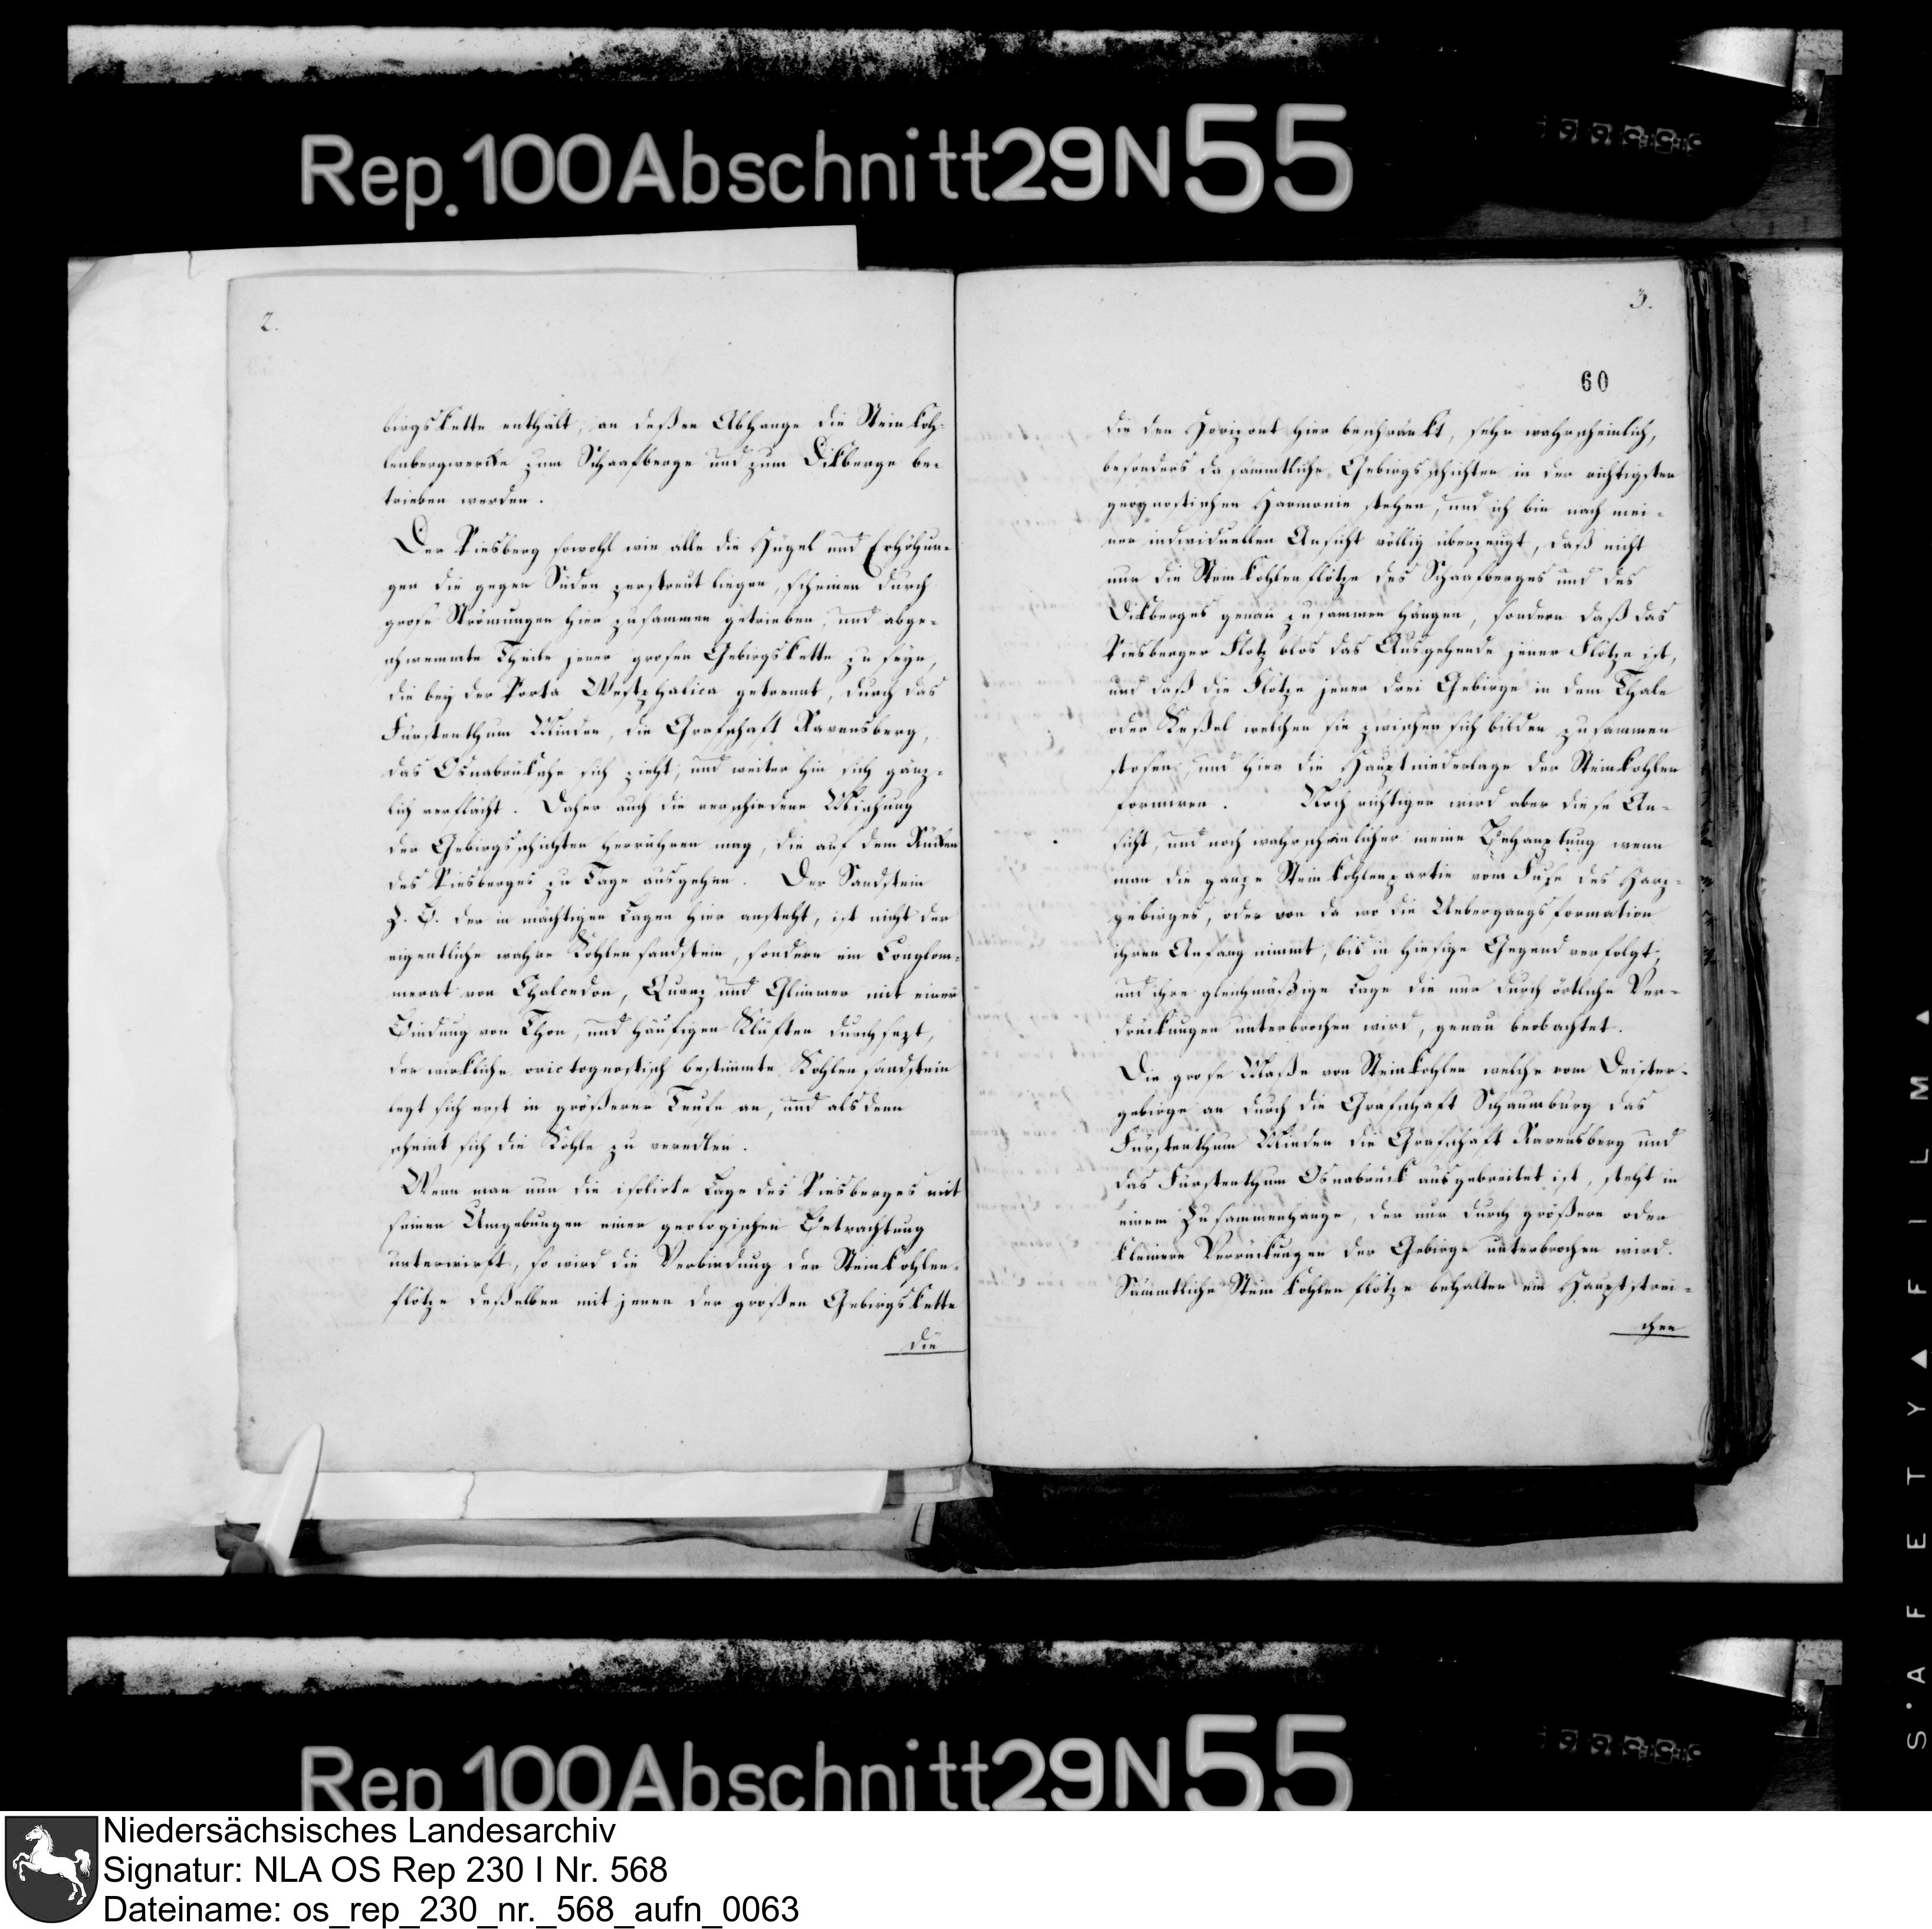 Rep. 100 Abschnitt 29 N 55
2.
birgskette enthält, an deßen Abhange die Steinkoh-
lenbergwerke zum Schaafberge und zum Dikberge be-
trieben werden.
Der Piesberg sowohl wie alle die Hügel und Erhöhun-
gen die gegen Süden zerstreut liegen, scheinen durch
grose Strömungen hier zusammen getrieben, und abge-
schwemmte Theile jener grosen Gebirgskette zu seyn,
die bey der Porta Westphalica getrennt, durch das
Fürstenthum Minden, die Grafschaft Ravensberg,
das Osnabrüksche sich zieht, und weiter hin sich gänz-
lich verflächt. Daher auch die verschiedene Mischung
der Gebirgsschichten herrühren mag, die auf dem Rücken
des Piesberges zu Tage ausgehen. Der Sandstein
z. B. der in mächtigen Lagen hier ansteht, ist nicht der
eigentliche wahre Kohlensandstein, sondern ein Conglom-
merat von Chalcedon, Quarz und Glimmer mit einer
Bindung von Thon, und häufigen Klüften durchsezt,
der wirkliche orictognostisch bestimmte Kohlensandstein
legt sich erst in größerer Teufe an, und alsdenn
scheint sich die Kohle zu veredlen.
Wenn man nun die isolirte Lage des Piesberges mit
seinen Umgebungen einer geologischen Betrachtung
unterwirft, so wird die Verbindung der Steinkohlen-
flötze deßelben mit jenen der großen Gebirgskette
die
3.
60
die den Horizont hier beschränkt, sehr wahrscheinlich,
besonders da sämmtliche Gebirgsschichten in der richtigsten
geognostischen Harmonie stehen, und ich bin nach mei-
ner individuellen Ansicht völlig überzeugt, daß nicht
nur die Steinkohlenflötze des Schaafberges und des
Dikberges genau zusammen hängen, sondern daß das
Piesberger Flötz blos das Ausgehende jener Flötze ist,
und daß die Flötze jener drei Gebirge in dem Thale
oder Keßel welchen sie zwischen sich bilden zusammen
stosen, und hier die Hauptniederlage der Steinkohlen
formiren. Noch richtiger wird aber diese An-
sicht, und noch wahrscheinlicher meine Behauptung wenn
man die ganze Steinkohlenpartie vom Fuse des Harz-
gebirges, oder von da wo die Uebergangsformation
ihren Anfang nimmt, bis in hiesige Gegend verfolgt,
und ihre gleichmäßige Lage die nur durch örtliche Ver-
drückungen unterbrochen wird, genau beobachtet.
Die grose Maße von Steinkohlen welche vom Deister-
gebirge an durch die Grafschaft Schaumburg das
Fürstenthum Minden die Grafschaft Ravensberg und
das Fürstenthum Osnabrück ausgebreitet ist, steht in
einem Zusammenhange, der nur durch größere oder
kleinere Verrückungen der Gebirge unterbrochen wird.
Sämmtliche Steinkohlenflötze behalten ein Hauptstrei-
chen
SAFETY FILM
Rep 100 Abschnitt 29 N 55
Niedersächsisches Landesarchiv
Signatur: NLA OS Rep 230 I Nr. 568
Dateiname: os_rep_230_nr._568_aufn_0063